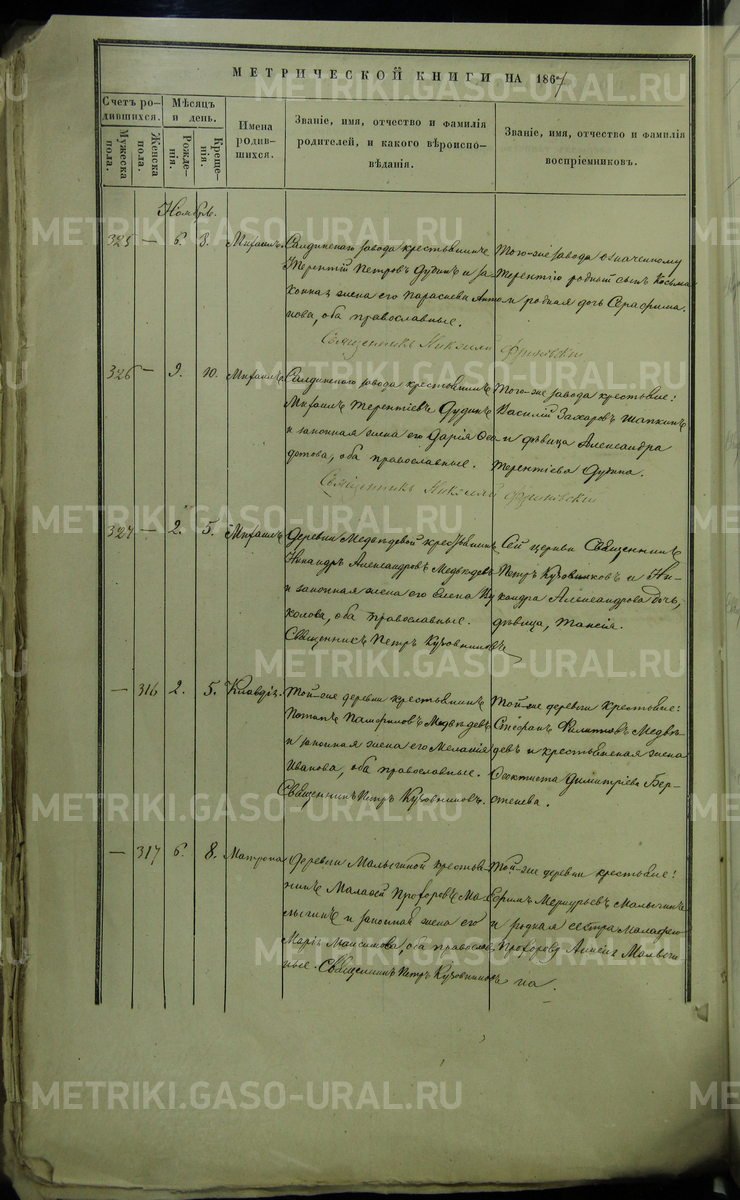 МЕТРИЧЕСКОЙ КНИГИ НА 1867
Счетъ родившихся.
Мужеска пола.
Женска пола.
Мѣсяцъ и день.
Рожденія.
Крещенія.
Имена родившихся.
Званіе, имя, отчество и фамилія родителей, и какого вѣроисповѣданія.
Званіе, имя, отчество и фамилія воспріемниковъ.
Ноябрь.
325 — 6. 8. Михаилъ.
Салдинскаго завода крестьянинъ
Терентій Петровъ Дудинъ и за-
конная жена его Параскева Анто-
нова, оба православные.
Священникъ Николай
Того-же завода означенному
Терентію родный сынъ Косьма
и родная дочь Серафима.
326 — 9. 10. Михаилъ.
Салдинскаго завода крестьянинъ
Михаилъ Терентіевъ Дудинъ
и законная жена его Дарія Ѳео-
дотова, оба православные.
Священникъ Николай
Того-же завода крестьяне:
Василій Захаровъ Шапкинъ
и дѣвица Александра
Терентіева Дудина.
327 — 2. 5. Михаилъ
Деревни Медвѣдевой крестьянинъ
Никандръ Александровъ Медвѣдевъ
и законная жена его Елена Ни-
колова, оба православные.
Священникъ Петръ Кузовниковъ
Сей церкви Священникъ
Петръ Кузовниковъ и Ни-
кандра Александрова дочь,
дѣвица, Таисія.
— 316 2. 5. Клавдія.
Той-же деревни крестьянинъ
Потапъ Памфиловъ Медвѣдевъ
и законная жена его Меланія
Иванова, оба православные.
Священникъ Петръ Кузовниковъ.
Той-же деревни крестьяне:
Стефанъ Филиповъ Медвѣ-
девъ и крестьянская жена
Ѳеоктиста Димитріева Бер-
стенева.
— 317 6. 8. Матрона
Деревни Малыгиной крестья-
нинъ Малаѳей Прохоровъ Ма-
лыгинъ и законная жена его
Марія Максимова, оба православ-
ные. Священникъ Петръ Кузовниковъ
Той-же деревни крестьяне:
Ефимъ Меркурьевъ Малыгинъ
и родная сестра Малаѳею
Прохорову Анисія Малыги-
на.
METRIKI.GASO-URAL.RU